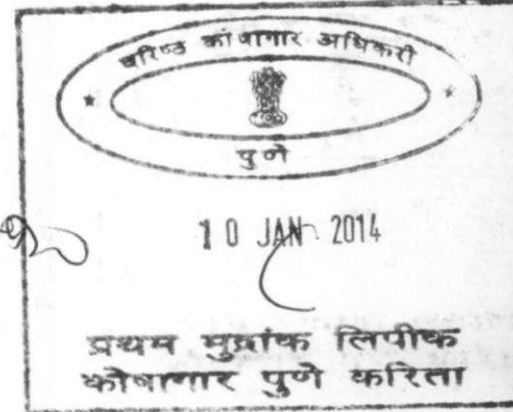 वरिष्ठ कोषागार अधिकारी
पुणे
10 JAN 2014
प्रथम मुद्रांक लिपीक
कोषागार पुणे करिता